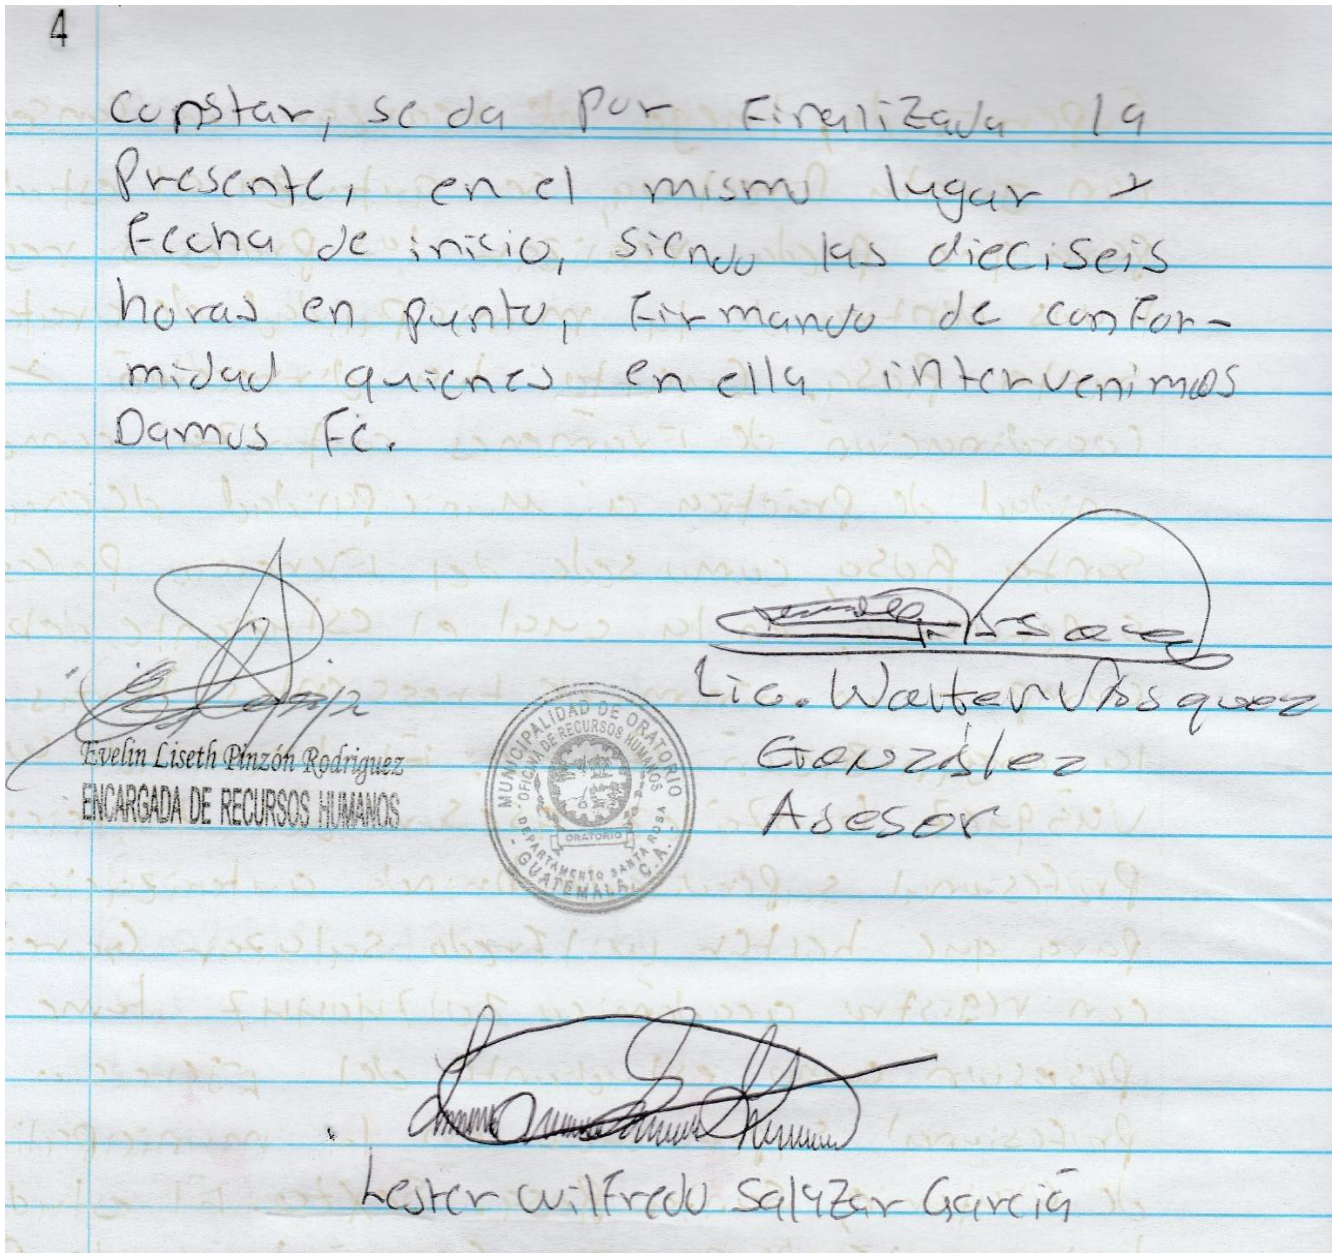 4
constar, se da por Finalizada la
Presente, en el mismo lugar y
Fecha de inicio, siendo las dieciseis
horas en punto, Firmando de conFor-
midad quienes en ella intervenimos
Damos Fé.
Lic. Walter Vásquez
González
Asesor
Evelin Liseth Pinzón Rodriguez
ENCARGADA DE RECURSOS HUMANOS
MUNICIPALIDAD DE ORATORIO
OFICINA DE RECURSOS HUMANOS
ORATORIO
DEPARTAMENTO SANTA ROSA
GUATEMALA, C.A.
Lester wilFredo Salazar García